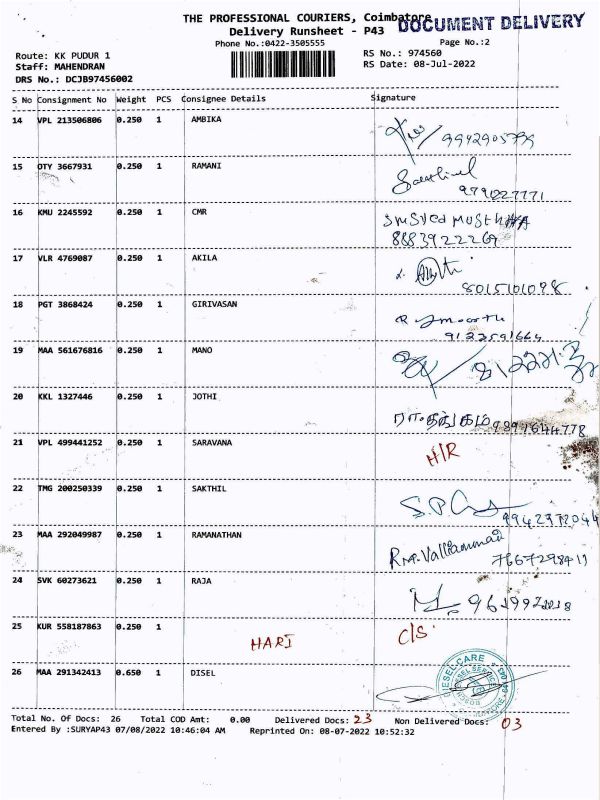 THE PROFESSIONAL COURIERS, Coimbatore
DOCUMENT DELIVERY
Delivery Runsheet - P43
Phone No.:0422-3505555
Page No.:2
Route: KK PUDUR 1
RS No.: 974560
Staff: MAHENDRAN
RS Date: 08-Jul-2022
DRS No.: DCJB97456002
S No Consignment No Weight PCS Consignee Details Signature
14 VPL 213506806 0.250 1 AMBIKA
9942905799
15 OTY 3667931 0.250 1 RAMANI
9791227771
16 KMU 2245592 0.250 1 CMR
8883922269
17 VLR 4769087 0.250 1 AKILA
8015101098
18 PGT 3868424 0.250 1 GIRIVASAN
9122591664
19 MAA 561676816 0.250 1 MANO
20 KKL 1327446 0.250 1 JOTHI
21 VPL 499441252 0.250 1 SARAVANA
H/R
22 TMG 200250339 0.250 1 SAKTHIL
9942372044
23 MAA 292049987 0.250 1 RAMANATHAN
RM.Valliammai
24 SVK 60273621 0.250 1 RAJA
25 KUR 558187863 0.250 1
HARI
C/S.
26 MAA 291342413 0.650 1 DISEL
DIESEL CARE
Total No. Of Docs: 26 Total COD Amt: 0.00 Delivered Docs: 23 Non Delivered Docs: 03
Entered By :SURYAP43 07/08/2022 10:46:04 AM Reprinted On: 08-07-2022 10:52:32